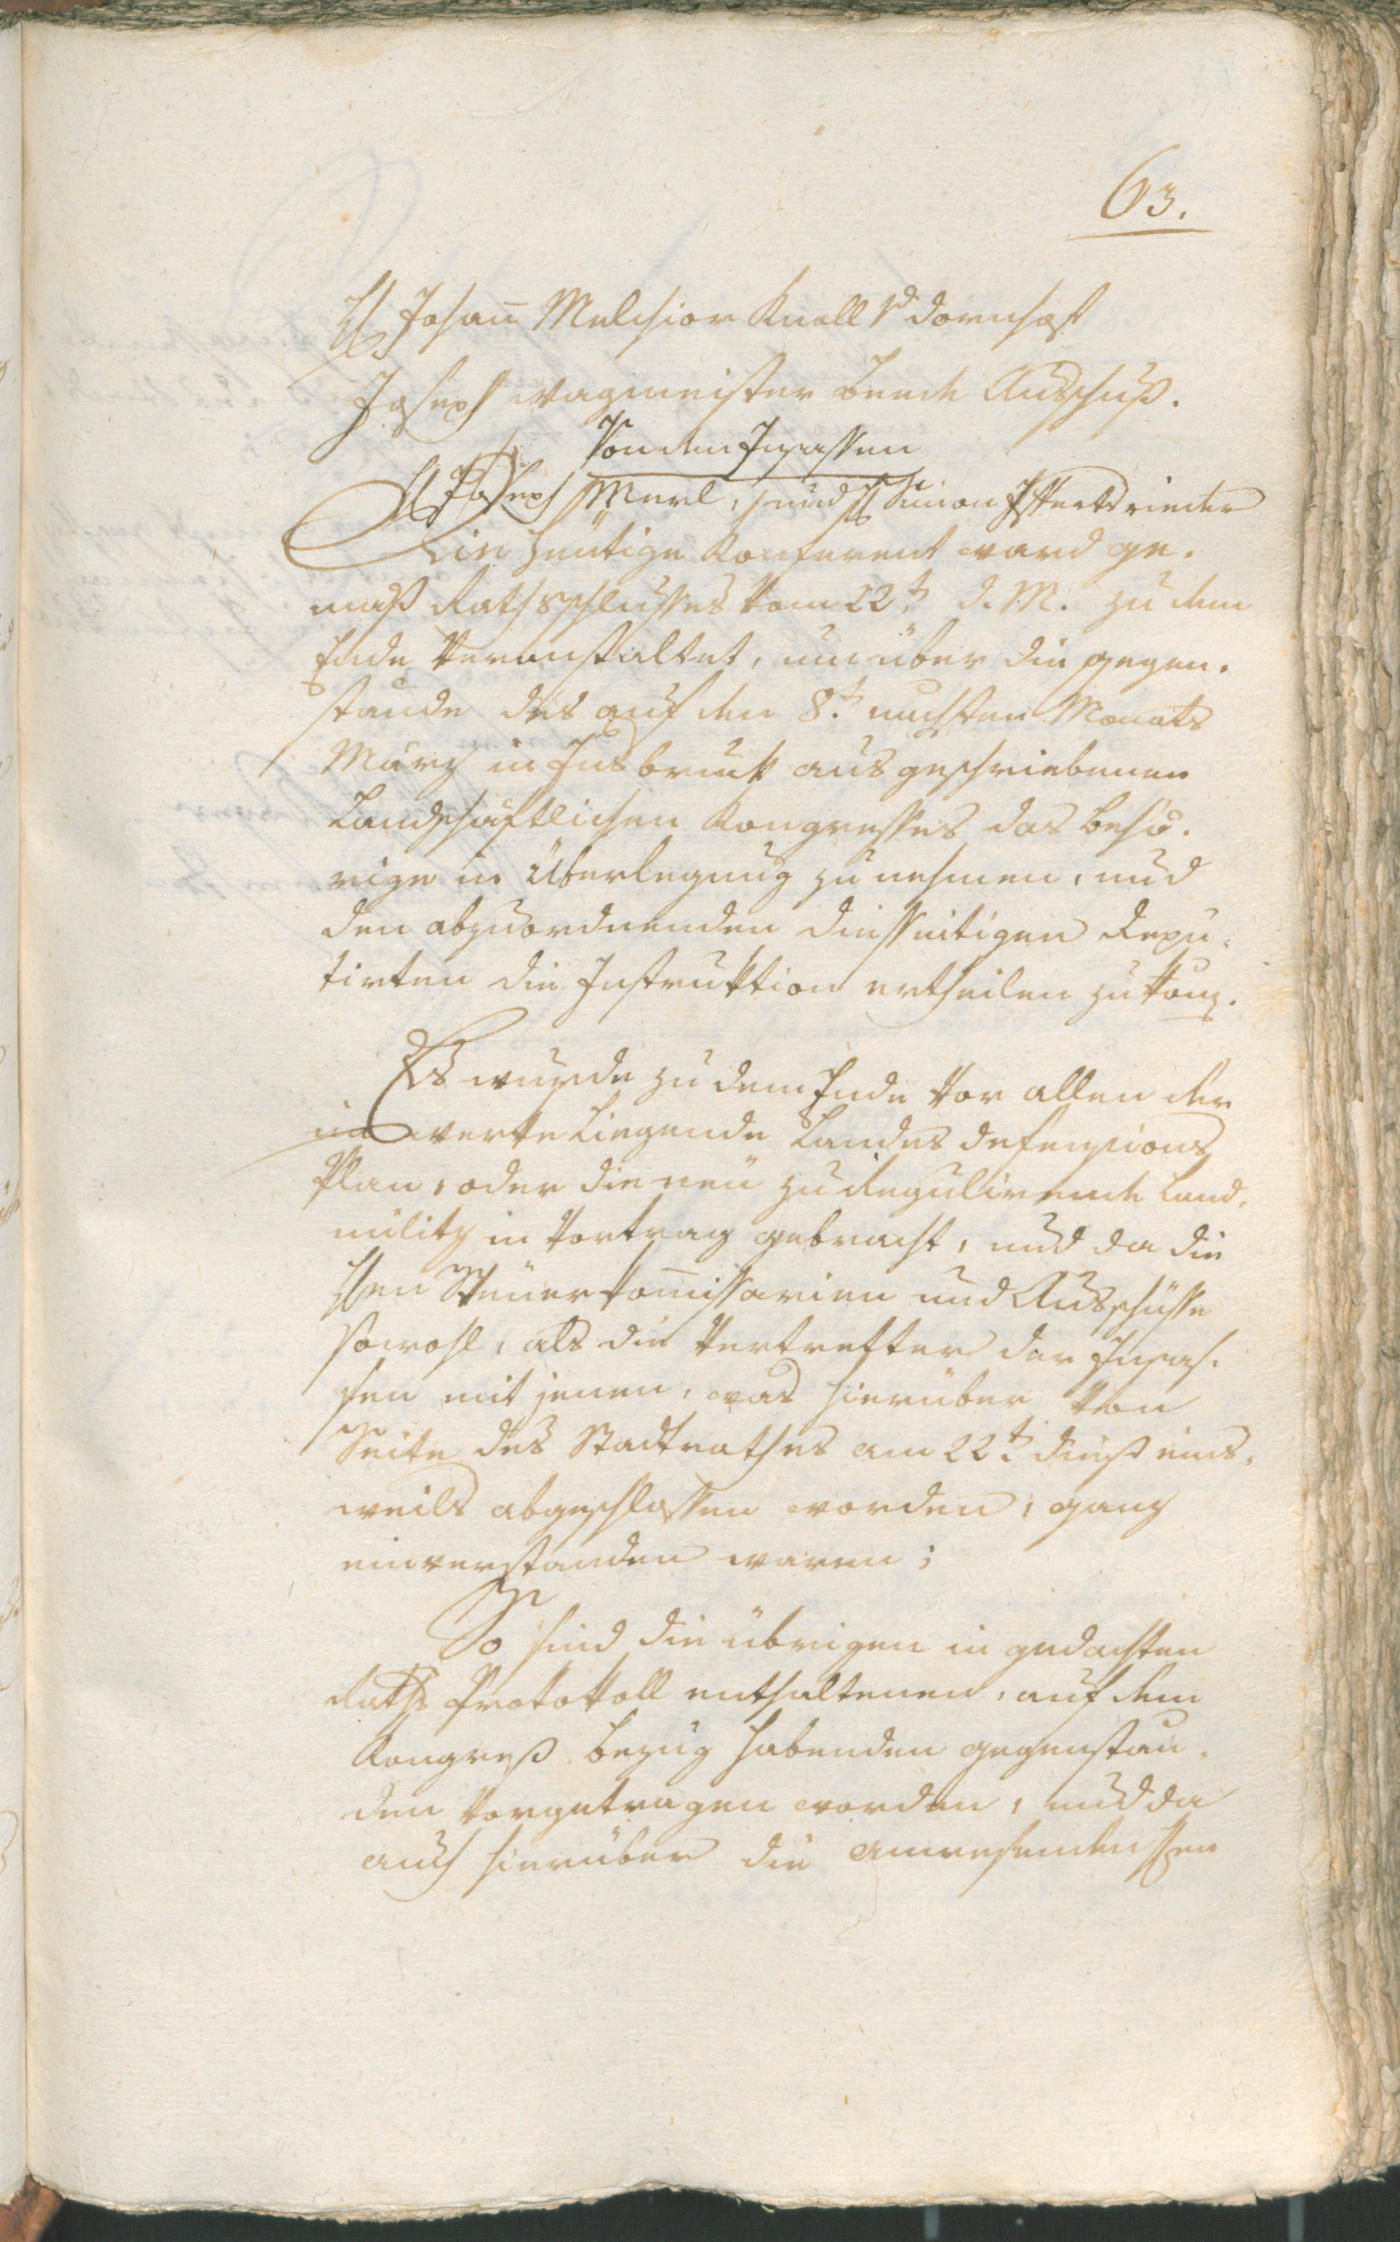 63.
H Johan̄ Melchior Knoll
Joseph Wagmeister beede Ausschuß.
Von den Insassen
H Joseph Merl, und H Simon
Die heutige Konferent ward ge-
maß Rathsschlusses vom 22t. d. M. zu dem
Ende veranstaltet, um über die gegen-
stande des auf den 8t. nachsten Monats
März in Insbruck ausgeschriebenen
Landschäftlichen Kongresses das behö-
rige in Überlegung zu nehmen, und
den abzuordnenden diesseitigen Depu-
tirten die Instruktion ertheilen zu kön̄.
Es wurde zu dem Ende vor allen der
im werke liegende Landes defensions
Plan, oder die neü zu Regulirende Land-
militz in Vortrag gebracht, und da die
Hen Steüerkom̄issarien und Ausschüsse
sowohl, als die Vertretter der Insas-
sen mit jenen, was hierüber von
Seite des Stadtrathes am 22t. dieß eins-
weils abgeschlossen worden, ganz
einverstanden waren;
So sind die übrigen in gedachten
Raths Protokoll enthaltenen, auf den
Kongreß bezug habenden gegenstän-
den vorgetragen worden, und da
auch hierüber die anwesenden Hen